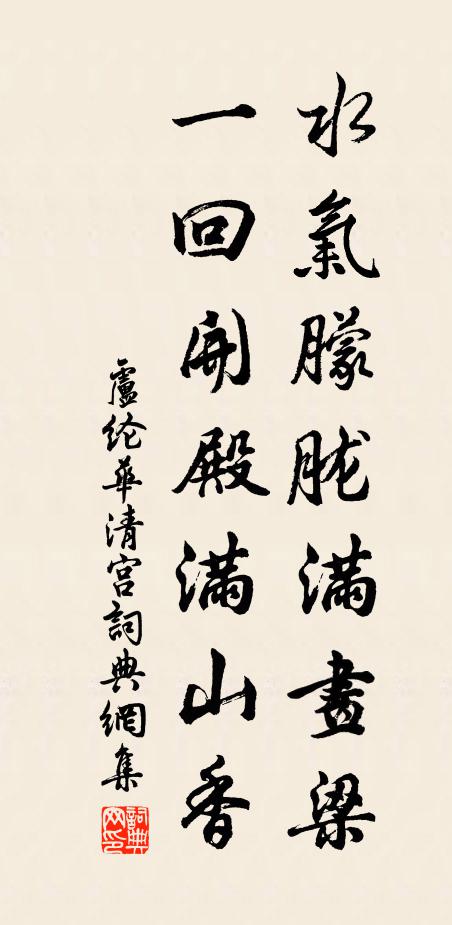 水氣朦胧滿畫梁
一回開殿滿山香
盧纶華清宫詞典網集
詞典网印